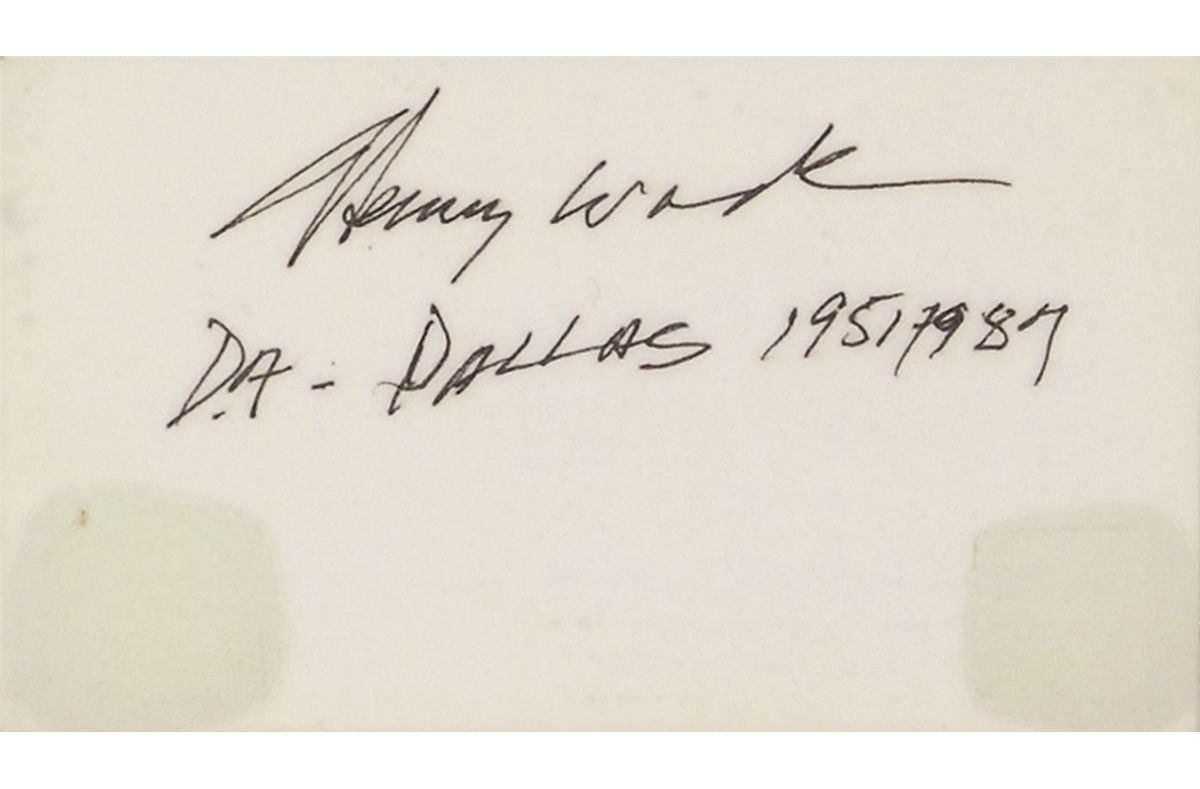 Henry Wade
D.A - DALLAS 1951-1987